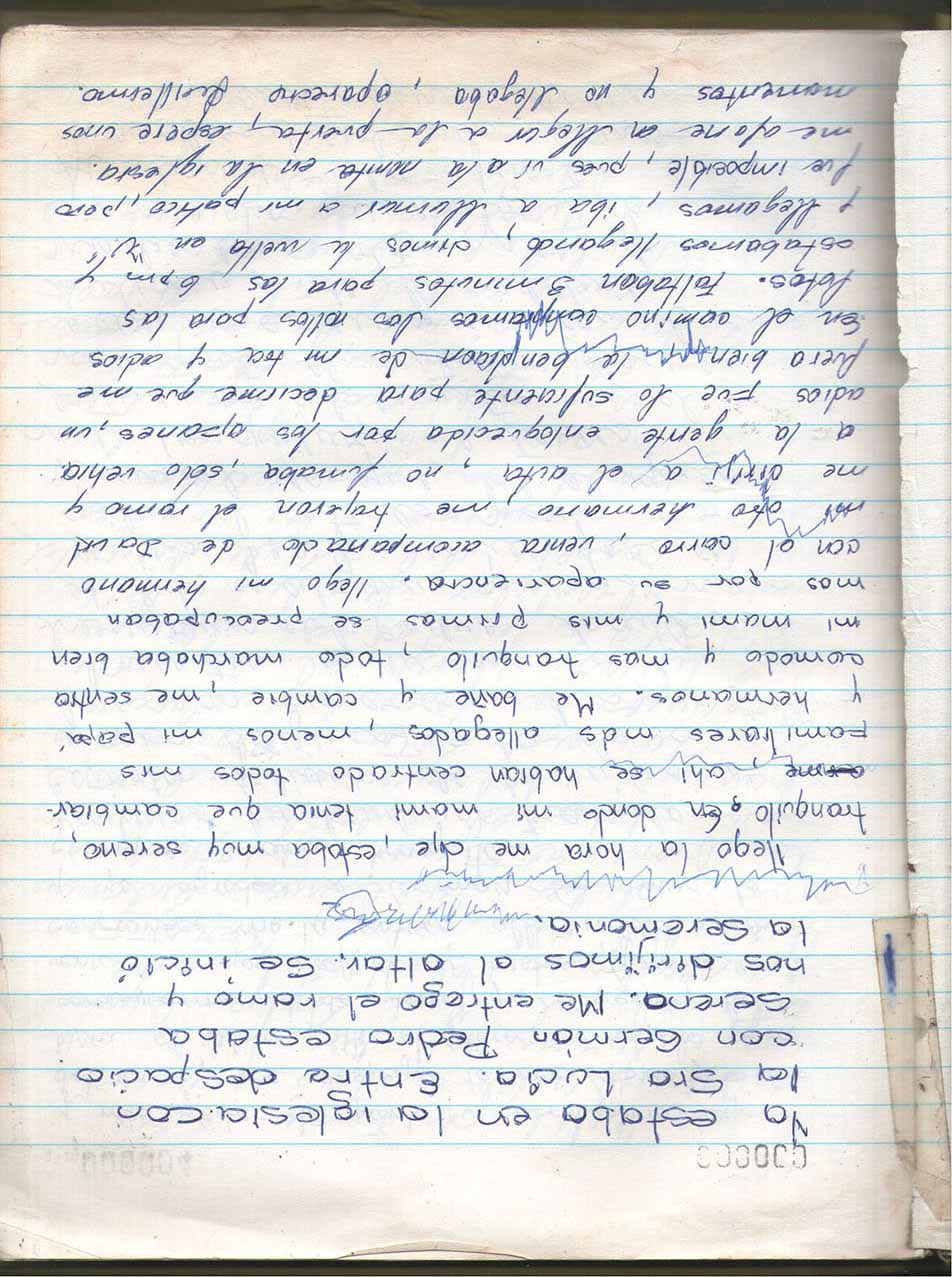 000003
Ya estaba en la iglesia con
la Sra Lucía. Entra despacio
con Germán Pedro estaba
Serena. Me entrego el ramo y
nos dirijimos al altar. Se inició
la seremonia.
llego la hora me dije, estaba muy sereno,
tranquilo, En donde mi mami tenia que cambiar-
me, ahi se habian centrado todos mis
familiares más allegados, menos mi papá
y hermanos. Me bañe y cambie, me sentia
comodo y mas tranquilo, todo marchaba bien
mi mami y mis primas se preocupaban
mas por su apariencia. llego mi hermano
con el carro, venia acompañado de David
mi otro hermano, me trajeron el ramo y
me dirijí a el auto, no fumaba, solo vehia
a la gente enloquecida por los afanes, un
adios fue lo suficiente para decirme que me
fuera bien la bendicion de mi tia y adios
En el camino compramos los rollos para las
fotos. Faltaban 3 minutos para las 6 pm y
estabamos llegando, dimos la vuelta en "U"
y llegamos, iba a llamar a mi patico, pero
fue imposible, pues ví a la en la iglesia.
me afane en llegar a la puerta, espere unos
momentos y no llegaba, aparecio Guillermo.